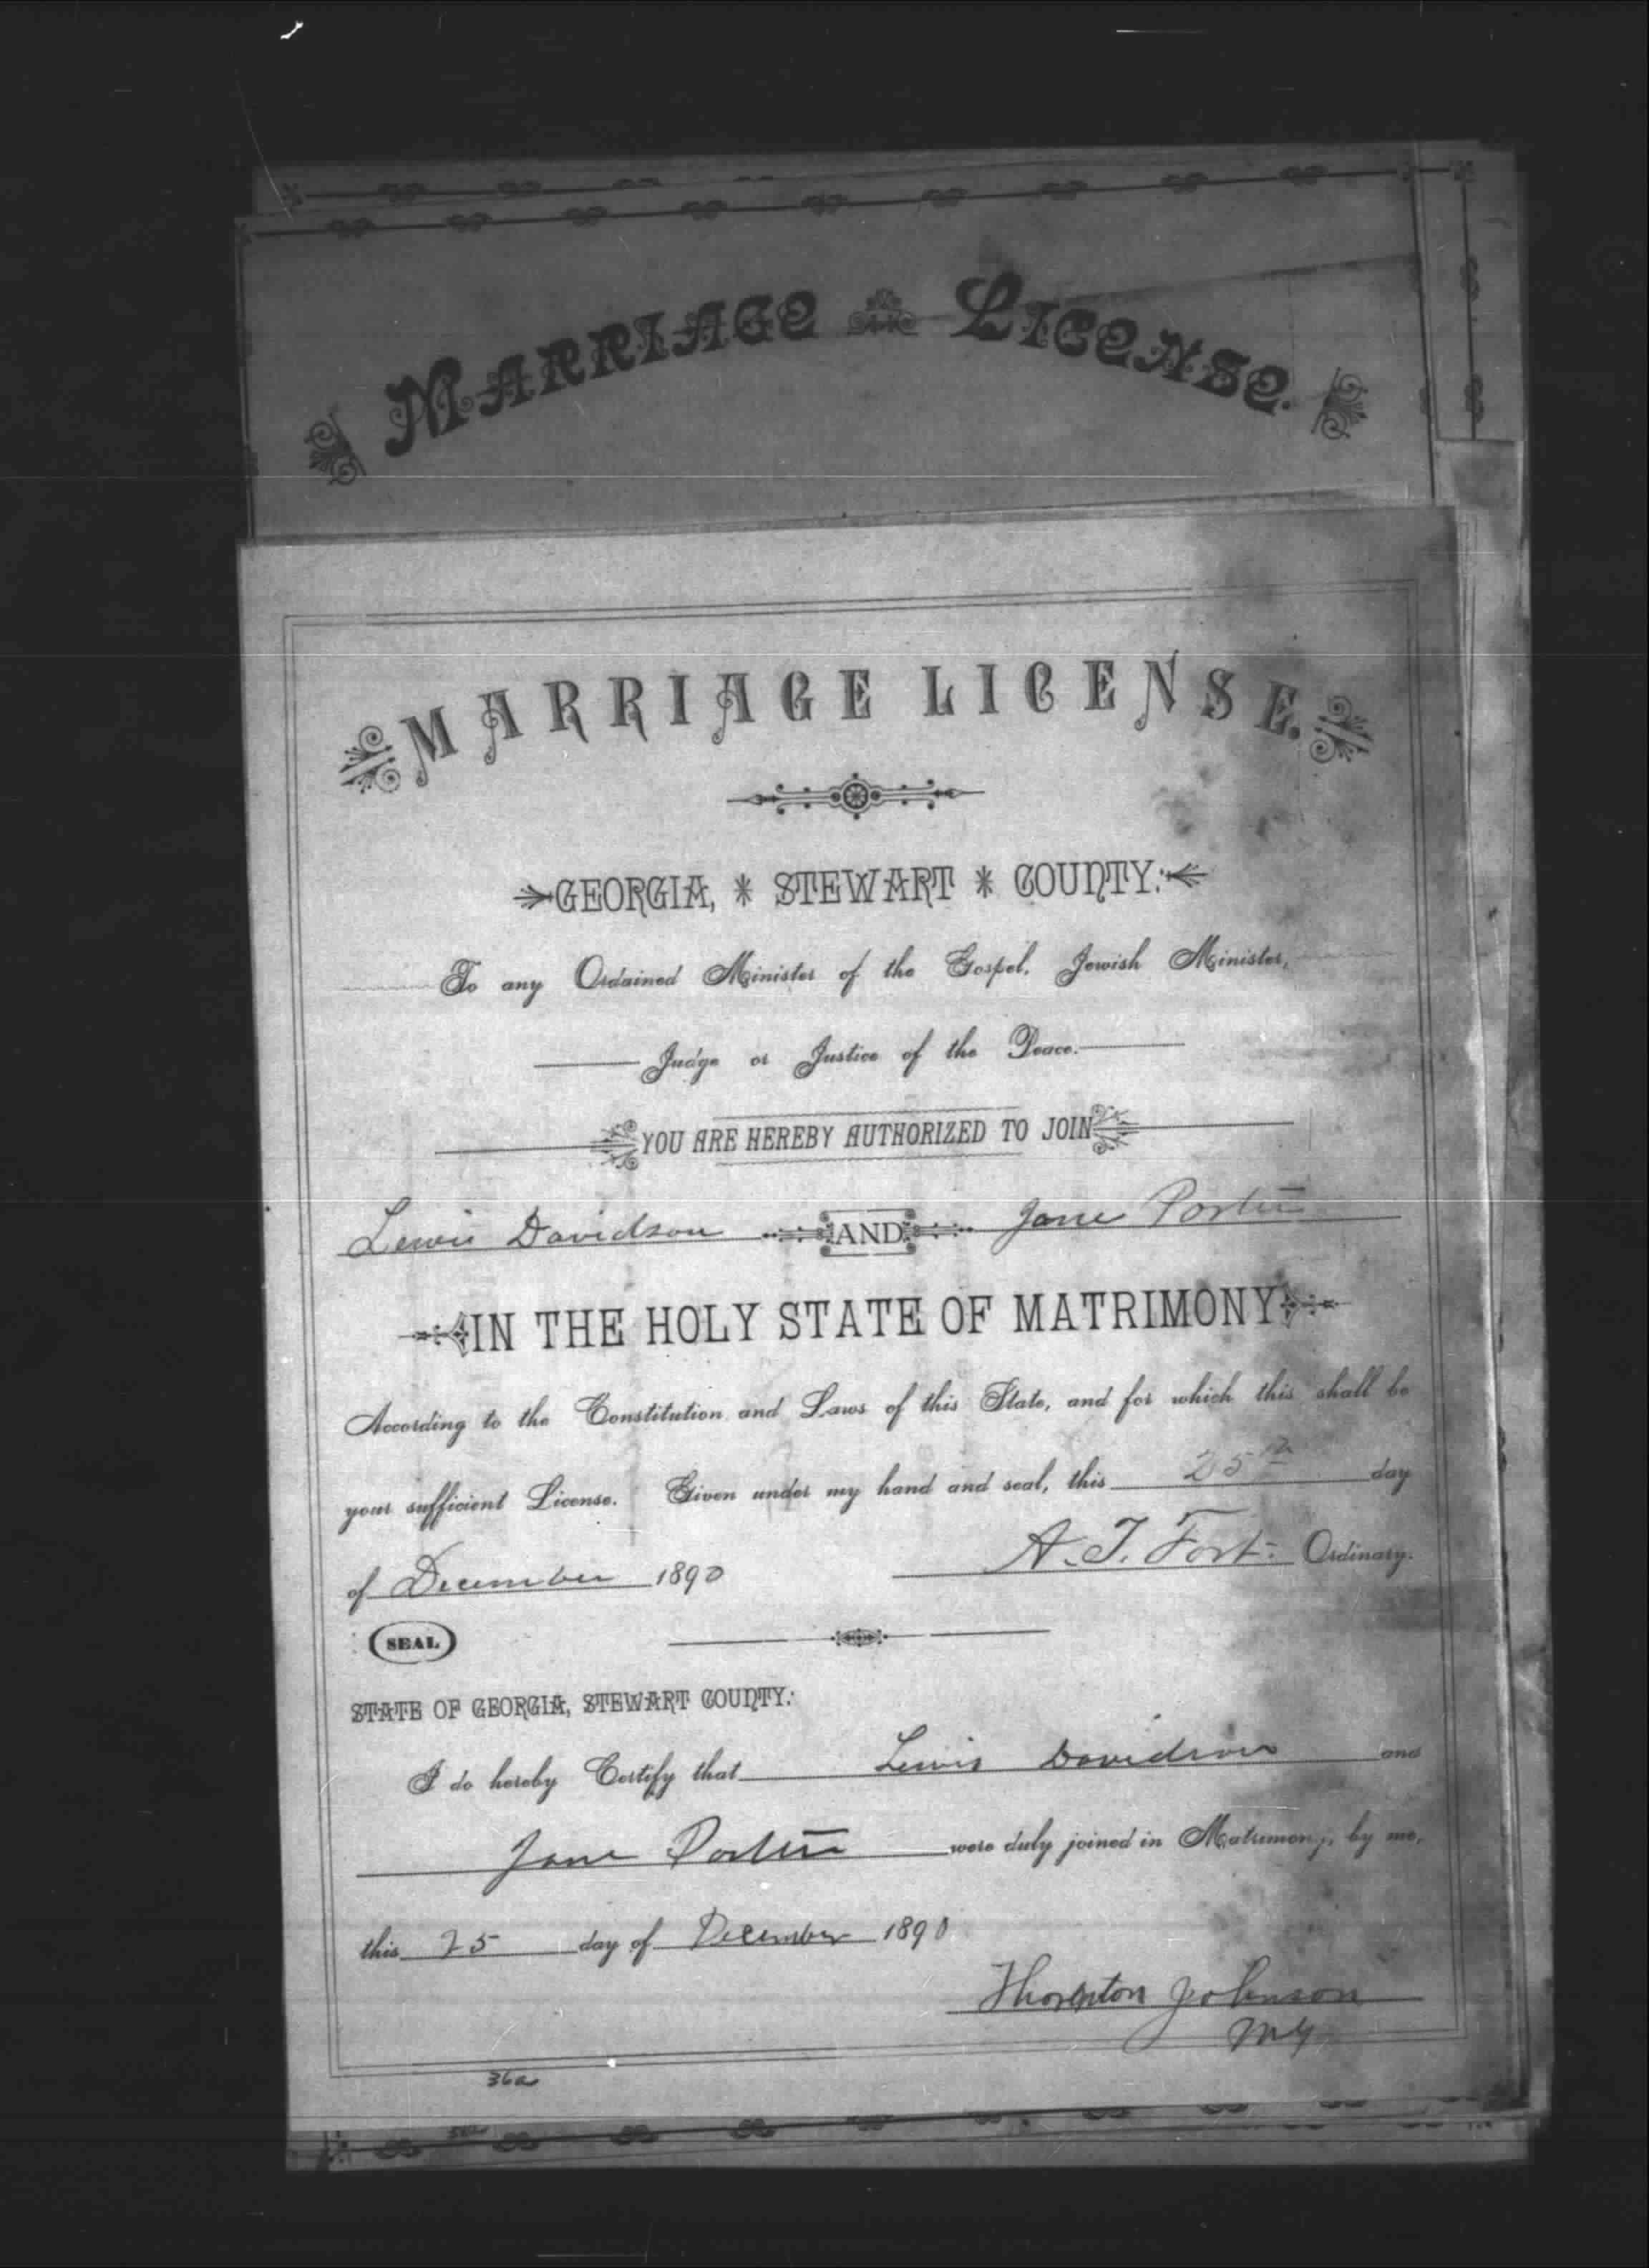 MARRIAGE LICENSE.
MARRIAGE LICENSE.
GEORGIA, * STEWART * COUNTY:
To any Ordained Minister of the Gospel, Jewish Minister,
Judge or Justice of the Peace.
YOU ARE HEREBY AUTHORIZED TO JOIN
Lewis Davidson AND Jane Porter
IN THE HOLY STATE OF MATRIMONY
According to the Constitution and Laws of this State, and for which this shall be
your sufficient License. Given under my hand and seal, this 25th day
of December 1890 A. T. Fort. Ordinary.
SEAL
STATE OF GEORGIA, STEWART COUNTY:
I do hereby Certify that Lewis Davidson and
Jane Porter were duly joined in Matrimony, by me,
this 25 day of December 1890
Thornton Johnson
MG
36a